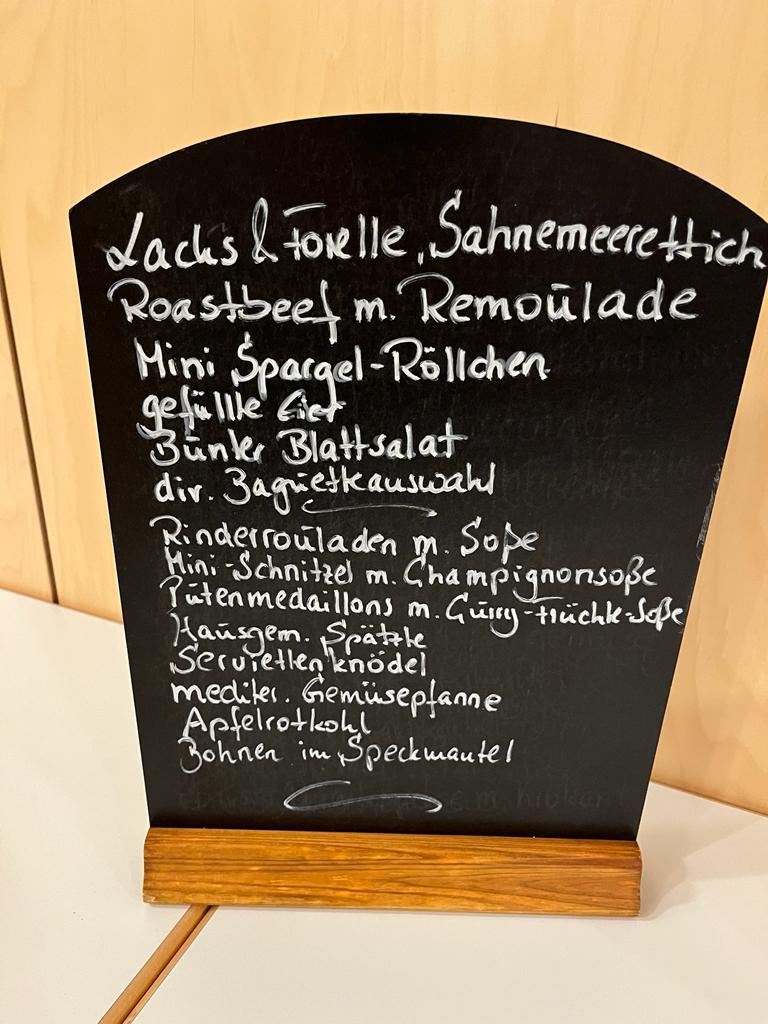 Lachs & Forelle, Sahnemeerettich
Roastbeef m. Remoulade
Mini Spargel-Röllchen
gefüllte Eier
Bunter Blattsalat
div. Baguetteauswahl
Rinderrouladen m. Soße
Mini-Schnitzel m. Champignonsoße
Putenmedaillons m. Curry-Früchte-Soße
Hausgem. Spätzle
Serviettenknödel
mediter. Gemüsepfanne
Apfelrotkohl
Bohnen im Speckmantel